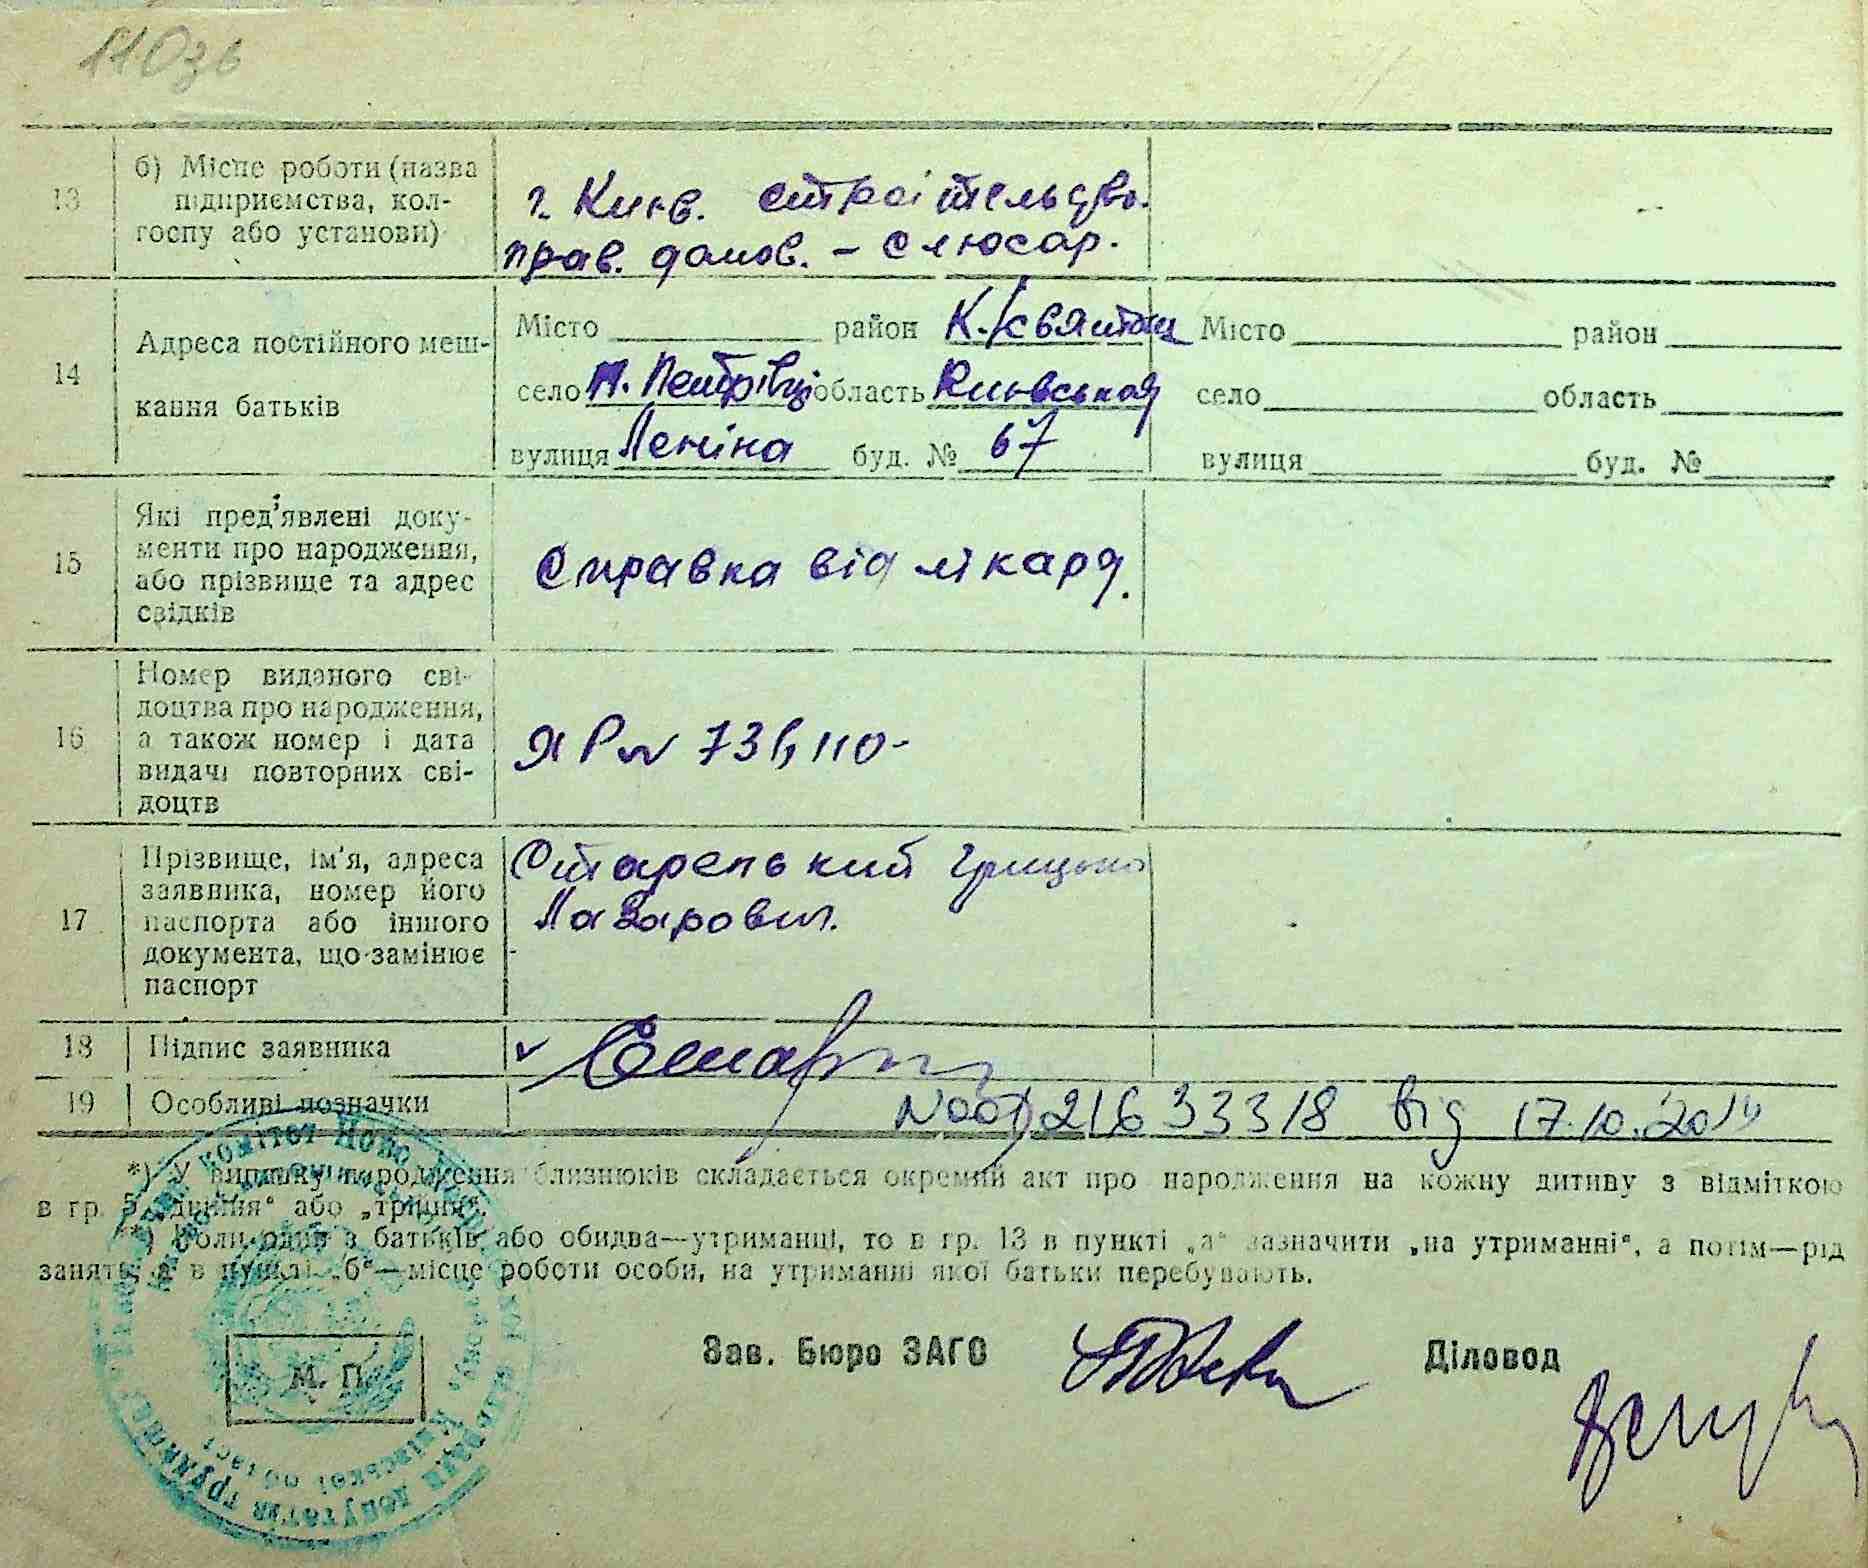 110зв
13
б) Місце роботи (назва
підприємства, кол-
госпу або установи)
г. Київ. строітельство.
прав. домов. – слюсар.
14
Адреса постійного меш-
кання батьків
Місто район К. Святош Місто район
село Н. Петрівці область Київська село область
вулиця Леніна буд. № 67 вулиця буд. №
15
Які пред'явлені доку-
менти про народження,
або прізвище та адрес
свідків
Справка від лікаря.
16
Номер виданого сві-
доцтва про народження,
а також номер і дата
видачі повторних сві-
доцтв
17
Прізвище, ім'я, адреса
заявника, номер його
паспорта або іншого
документа, що замінює
паспорт
Грицько
Лазарович.
18 Підпис заявника
19 Особливі позначки 21633318 від 17.10.20
*) У випадку народження близнюків складається окремий акт про народження на кожну дитину з відміткою
в гр. 5 „двійня“ або „трійня“.
**) Коли один з батьків або обидва—утриманці, то в гр. 13 в пункті „а“ зазначити „на утриманні“, а потім—рід
занять, а в пункті „б“—місце роботи особи, на утриманні якої батьки перебувають.
М. П.
Зав. Бюро ЗАГС Діловод